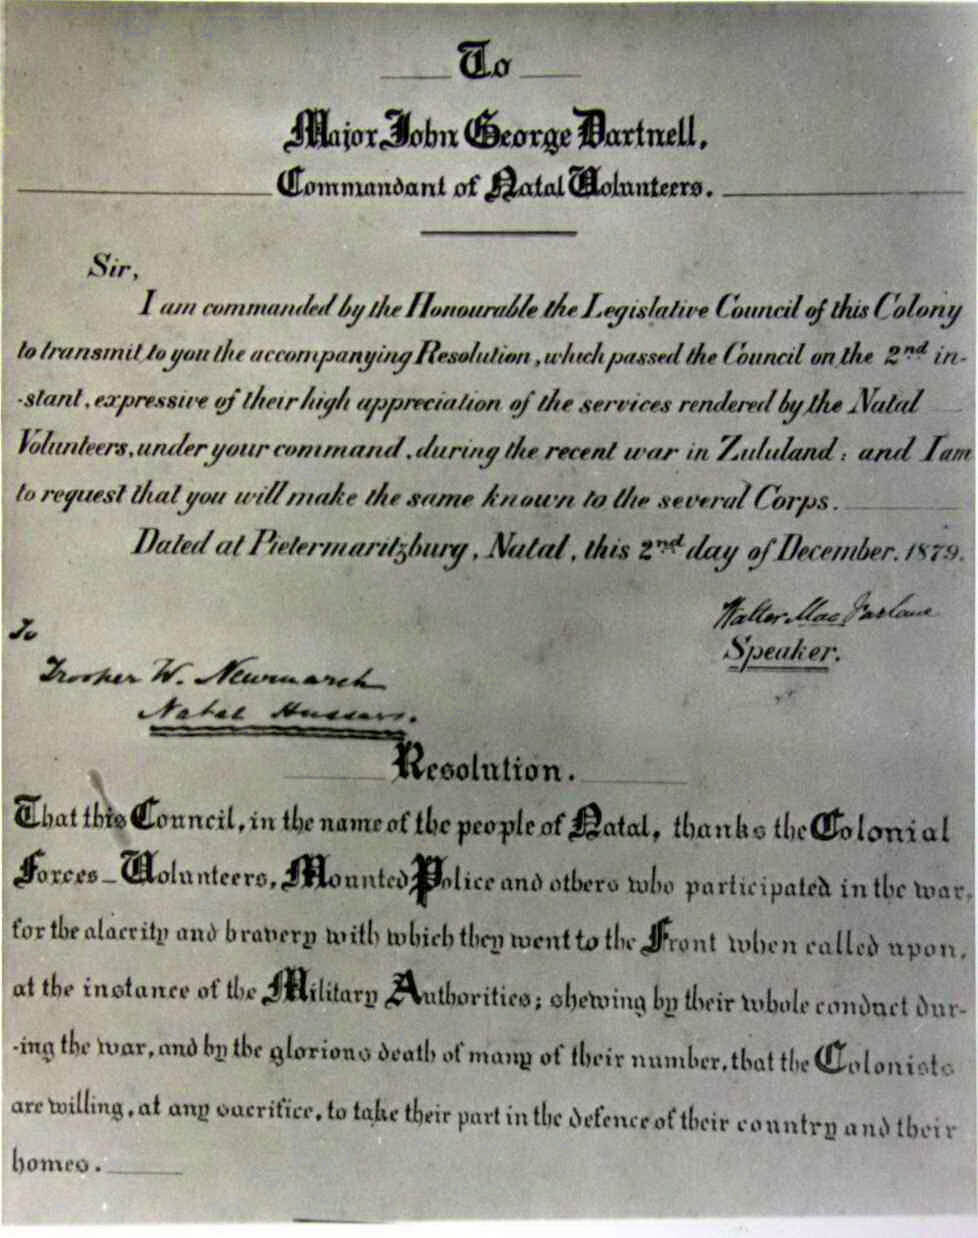 To
Major John George Dartnell,
Commandant of Natal Volunteers.
Sir,
I am commanded by the Honourable the Legislative Council of this Colony
to transmit to you the accompanying Resolution, which passed the Council on the 2nd in-
-stant, expressive of their high appreciation of the services rendered by the Natal
Volunteers, under your command, during the recent war in Zululand: and I am
to request that you will make the same known to the several Corps.
Dated at Pietermaritzburg, Natal, this 2nd day of December, 1879.
Walter Macfarlane
Speaker.
To
Trooper W. Newmarch
Natal Hussars.
Resolution.
That this Council, in the name of the people of Natal, thanks the Colonial
Forces_Volunteers, Mounted Police and others who participated in the war,
for the alacrity and bravery with which they went to the Front when called upon,
at the instance of the Military Authorities; shewing by their whole conduct dur-
-ing the war, and by the glorious death of many of their number, that the Colonists
are willing, at any sacrifice, to take their part in the defence of their country and their
homes.